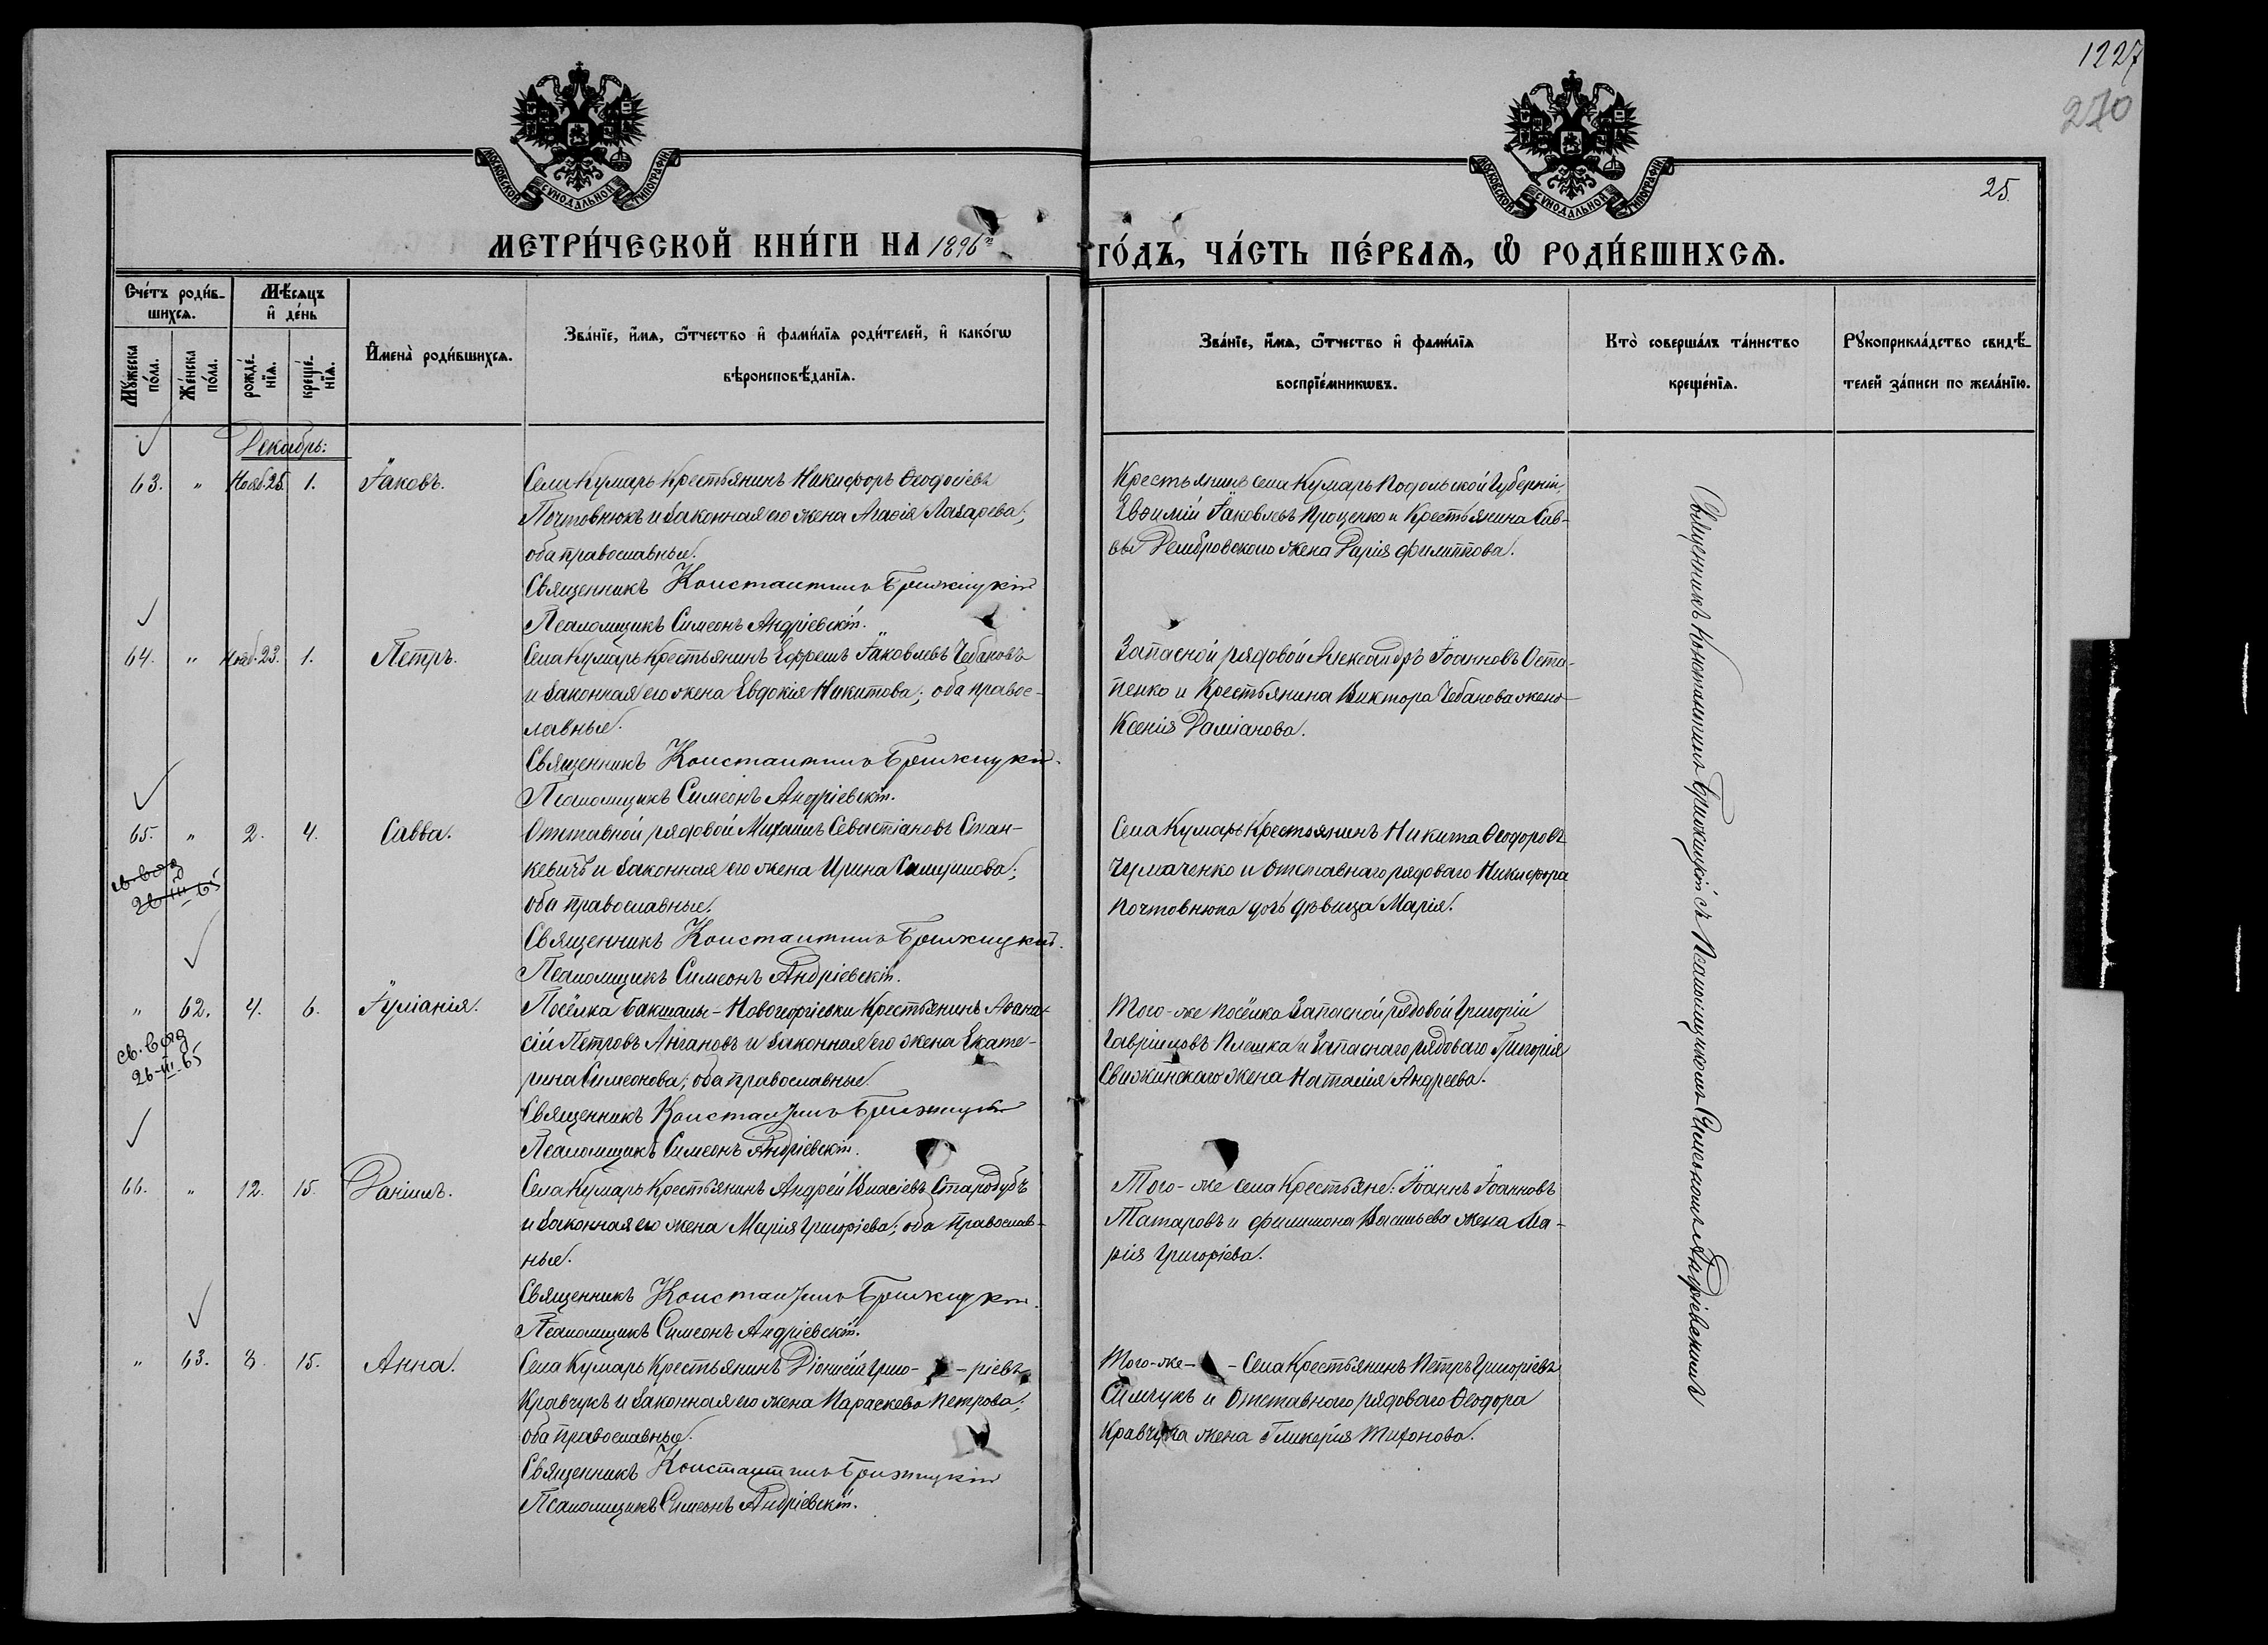 1227
270
25.
МОСКОВСКОЙ СѴНОДАЛЬНОЙ ТИПОГРАФІИ
МОСКОВСКОЙ СѴНОДАЛЬНОЙ ТИПОГРАФІИ
МЕТРИ́ЧЕСКОЙ КНИ́ГИ НА 1896й ГО́ДЪ, ЧА́СТЬ ПЕ́РВАѦ, Ѿ РОДИ́ВШИХСѦ.
Сче́тъ роди́в-
шихсѧ.
Мѣ́сѧцъ
и҆ де́нь
Мꙋ́жеска
по́ла.
Же́нска
по́ла.
рожде́-
нїѧ.
креще́-
нїѧ.
И҆мена̀ роди́вшихсѧ.
Зва́нїе, и҆́мѧ, ѻ҆́тчество и҆ фами́лїѧ роди́телей, и҆ како́гѡ
вѣроисповѣ́данїѧ.
Зва́нїе, и҆́мѧ, ѻ҆́тчество и҆ фами́лїѧ
воспрїе́мникѡвъ.
Кто̀ соверша́лъ та́инство
креще́нїѧ.
Рꙋкоприкла́дство свидѣ́-
телей за́писи по жела́нїю.
Декабрь:
63. " Нояб. 25. 1. Іаковъ.
Села Кумарь Крестьянинъ Никифоръ Ѳеодосіевъ
Почтовнюкъ и законная его жена Агаѳія Лазарева;
оба православные.
Священникъ Константинъ Брижицкій
Псаломщикъ Симеонъ Андріевскій.
Крестьянинъ села Кумарь Подольской Губерніи,
Евѳимій Іаковлевъ Проценко и Крестьянина Сав-
вы Домбровскаго жена Дарія Филиппова.
64. " Нояб. 23. 1. Петръ.
Села Кумарь Крестьянинъ Ефремъ Іаковлевъ Чебановъ
и законная его жена Евдокія Никитова; оба правос-
лавные.
Священникъ Константинъ Брижицкій.
Псаломщикъ Симеонъ Андріевскій.
Запасной рядовой Александръ Іоанновъ Оста-
пенко и Крестьянина Виктора Чебанова жена
Ксенія Даміанова.
65. " 2. 4. Савва.
Отставной рядовой Михаилъ Севастіановъ Стан-
кевичъ и законная его жена Ирина
оба православные.
Священникъ Константинъ Брижицкій.
Псаломщикъ Симеонъ Андріевскій.
Села Кумарь Крестьянинъ Никита Ѳеодоровъ
Чумаченко и Отставнаго рядоваго Никифора
Почтовнюка дочь дѣвица Марія.
" 62. 4. 6. Іуліанія.
св. выд
26-III-65
Посёлка Бакшалы-Новогеоргіевки Крестьянинъ Аѳана-
сій Петровъ Ангановъ и законная его жена Екате-
рина Симеонова; оба православные.
Священникъ Константинъ Брижицкій
Псаломщикъ Симеонъ Андріевскій.
Того-же посёлка Запасной рядовой Григорій
Гавріиловъ Плешка и Запаснаго рядоваго Григорія
Свижинскаго жена Наталія Андреева.
66. " 12. 15. Даніилъ.
Села Кумарь Крестьянинъ Андрей Власіевъ Стародубъ
и законная его жена Марія Григоріева; оба православ-
ные.
Священникъ Константинъ Брижицкій.
Псаломщикъ Симеонъ Андріевскій.
Того-же села Крестьяне: Іоаннъ Іоанновъ
Татаровъ и Филимона Васильева жена Ма-
рія Григоріева.
" 63. 8. 15. Анна.
Села Кумарь Крестьянинъ Діонисій Григо- -ріевъ
Кравчукъ и законная его жена Параскева Петрова;
оба православные.
Священникъ Константинъ Брижицкій
Псаломщикъ Симеонъ Андріевскій.
Того-же- -Села Крестьянинъ Петръ Григоріевъ
Симчукъ и Отставного рядоваго Ѳеодора
Кравчука жена Гликерія Тихонова.
Священникъ Константинъ Брижицкій съ Псаломщикомъ Симеономъ Андріевскимъ